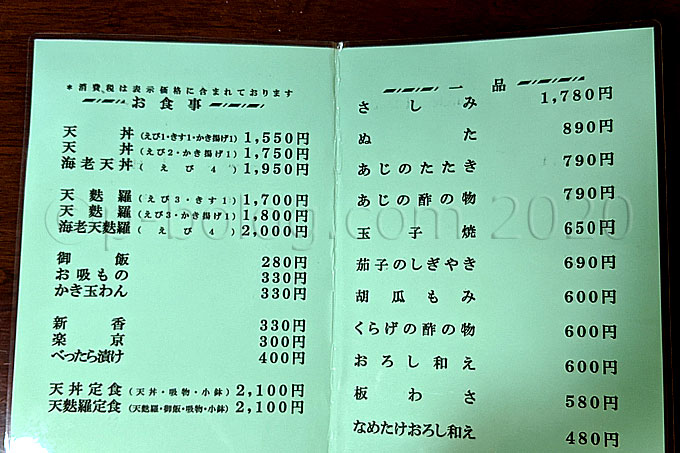 ＊消費税は表示価格に含まれております
お食事
天丼(えび1・きす1・かき揚げ1) 1,550円
天丼(えび2・かき揚げ1) 1,750円
海老天丼(えび4) 1,950円
天麩羅(えび3・きす1) 1,700円
天麩羅(えび3・かき揚げ1) 1,800円
海老天麩羅(えび4) 2,000円
御飯 280円
お吸もの 330円
かき玉わん 330円
新香 330円
楽京 300円
べったら漬け 400円
天丼定食(天丼・吸物・小鉢) 2,100円
天麩羅定食(天麩羅・御飯・吸物・小鉢) 2,100円
一品
さしみ 1,780円
ぬた 890円
あじのたたき 790円
あじの酢の物 790円
玉子焼 650円
茄子のしぎやき 690円
胡瓜もみ 600円
くらげの酢の物 600円
おろし和え 600円
板わさ 580円
なめたけおろし和え 480円